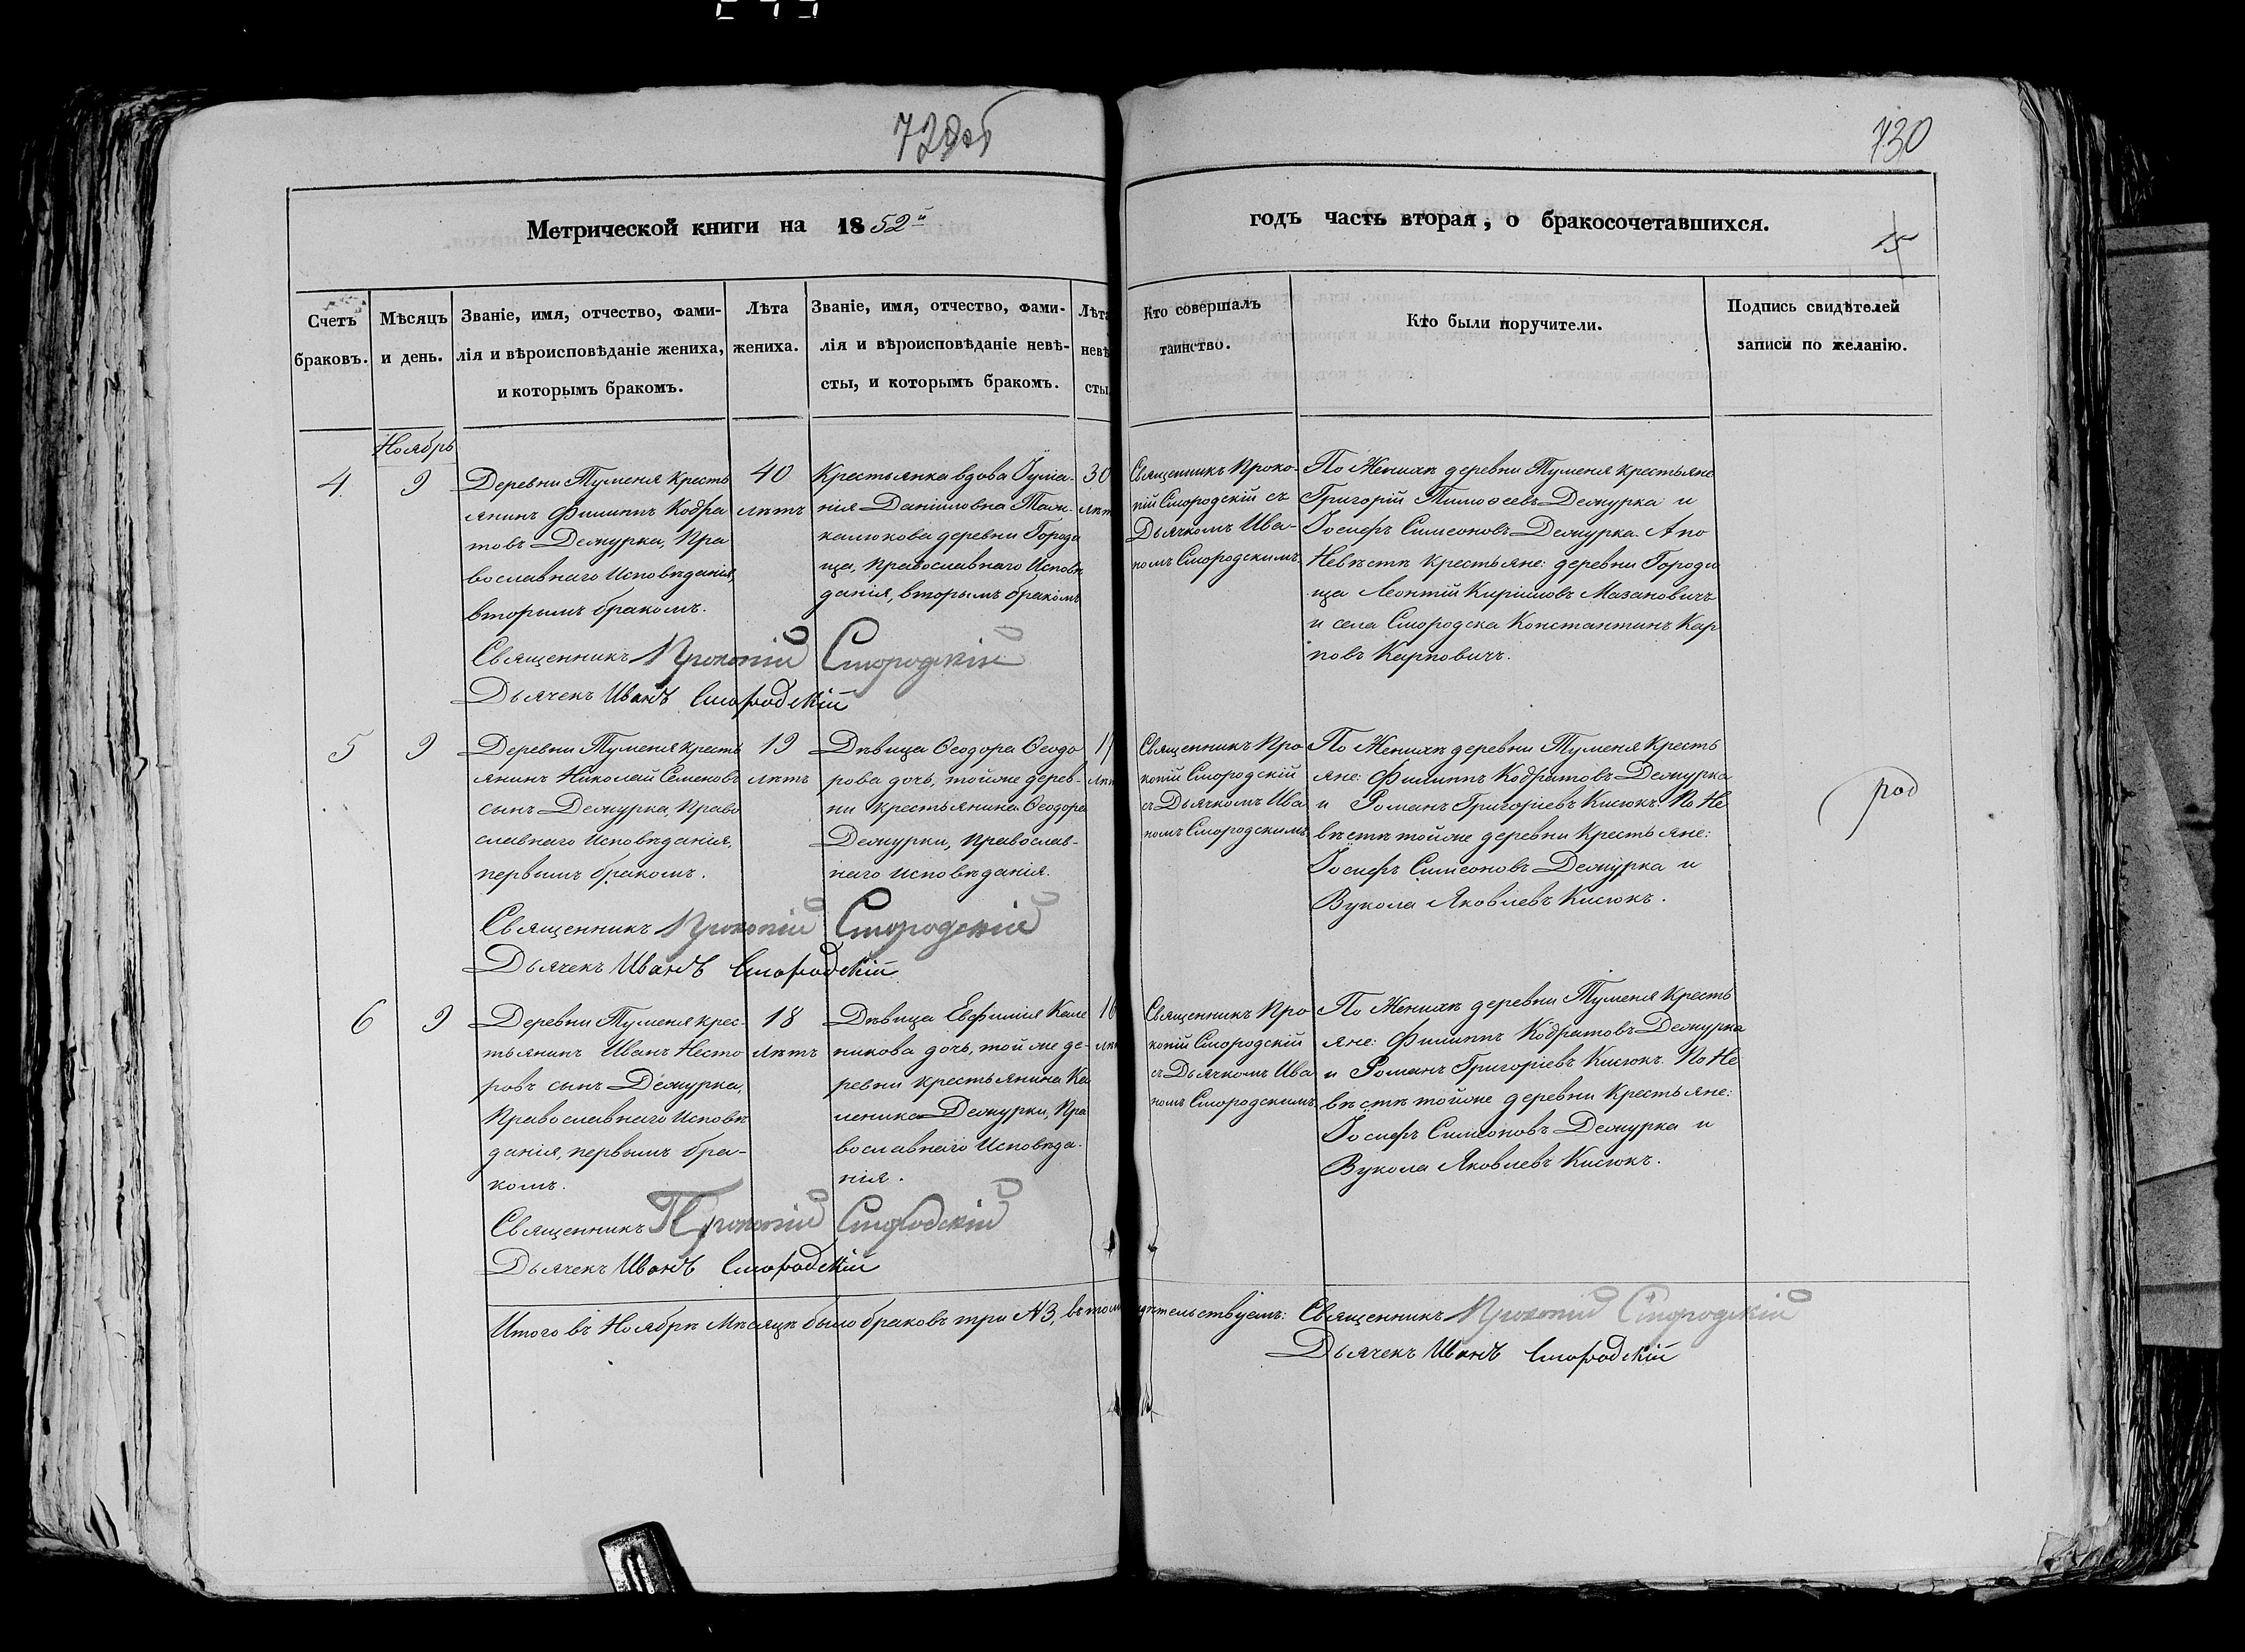 729об
730
Метрической книги на 1852й
годъ часть вторая, о бракосочетавшихся.
15
Счетъ
браковъ.
Мѣсяцъ
и день.
Званіе, имя, отчество, фами-
лія и вѣроисповѣданіе жениха,
и которымъ бракомъ.
Лѣта
жениха.
Званіе, имя, отчество, фами-
лія и вѣроисповѣданіе невѣ-
сты, и которымъ бракомъ.
Лѣта
невѣ
сты
Кто совершалъ
таинство.
Кто были поручители.
Подпись свидѣтелей
записи по желанію.
Ноябрь
4.
9
Деревни Туменя кресть
янинъ Филиппъ Кодра
товъ Демурка, Пра
вославнаго Исповѣданія,
вторымъ бракомъ.
40
лѣтъ
Крестьянка вдова Іулiа-
нія Даніиловна
калюкова деревни Городи
ща, Православнаго Исповѣ
данія, вторымъ бракомъ
30
лѣт
Священникъ Проко-
пій Смородскій съ
Дьячкомъ Ива-
номъ Смородскимъ.
По Женихѣ деревни Туменя крестьяне
Григорій Тимоѳеевъ Демурка и
Іосифъ Симеоновъ Демурка. А по
Невѣстѣ крестьяне: деревни Городи
ща Леонтій Кириловъ Мазановичъ
и села Смородска Константинъ Кар
повъ Карповичъ.
Священникъ Прокопій Смородскій
Дьячекъ Иванъ Смородскій
5
9
Деревни Туменя кресть
янинъ Николай Семеновъ
сынъ Демурка, Право
славнаго Исповѣданія,
первымъ бракомъ.
19
лѣтъ
Дѣвица Ѳеодора Ѳеодо
рова дочь, тойже дерев-
ни крестьянина Ѳеодора
Демурки, Православ-
наго исповѣданія.
лѣт
Священникъ Про
копій Смородскій
съ Дьячкомъ Ива
номъ Смородскимъ.
По Женихѣ деревни Туменя Кресть
яне: Филиппъ Кодратовъ Демурка
и Романъ Григоріевъ Кисюкъ. По Не
вѣстѣ тойже деревни Крестьяне:
Іосифъ Симеоновъ Демурка и
Вукола Яковлевъ Кисюкъ.
род
Священникъ Прокопій Смородскій
Дьячекъ Иванъ Смородскій
6
9
Деревни Туменя крес-
тьянинъ Иванъ Несто
ровъ сынъ Демурка,
Православнаго Исповѣ
данія, первымъ бра-
комъ.
18
лѣтъ
Дѣвица Евфимія Кале
никова дочь, той же де-
ревни крестьянина Ка
леника Демурки, Пра
вославнаго Исповѣда-
нія.
16
лѣт
Священникъ Про
копій Смородскій
съ Дьячкомъ Ива
номъ Смородскимъ.
По Женихѣ деревни Туменя Кресть
яне: Филиппъ Кодратовъ Демурка
и Романъ Григоріевъ Кисюкъ. По Не
вѣстѣ тойже деревни Крестьяне:
Іосифъ Симеоновъ Демурка и
Вукола Яковлевъ Кисюкъ.
Священникъ Прокопій Смородскій
Дьячекъ Иванъ Смородскій
Итого въ Ноябрѣ Мѣсяцѣ было браковъ три №3, въ томъ дѣтельствуемъ: Священникъ Прокопій Смородскій
Дьячекъ Иванъ Смородскій